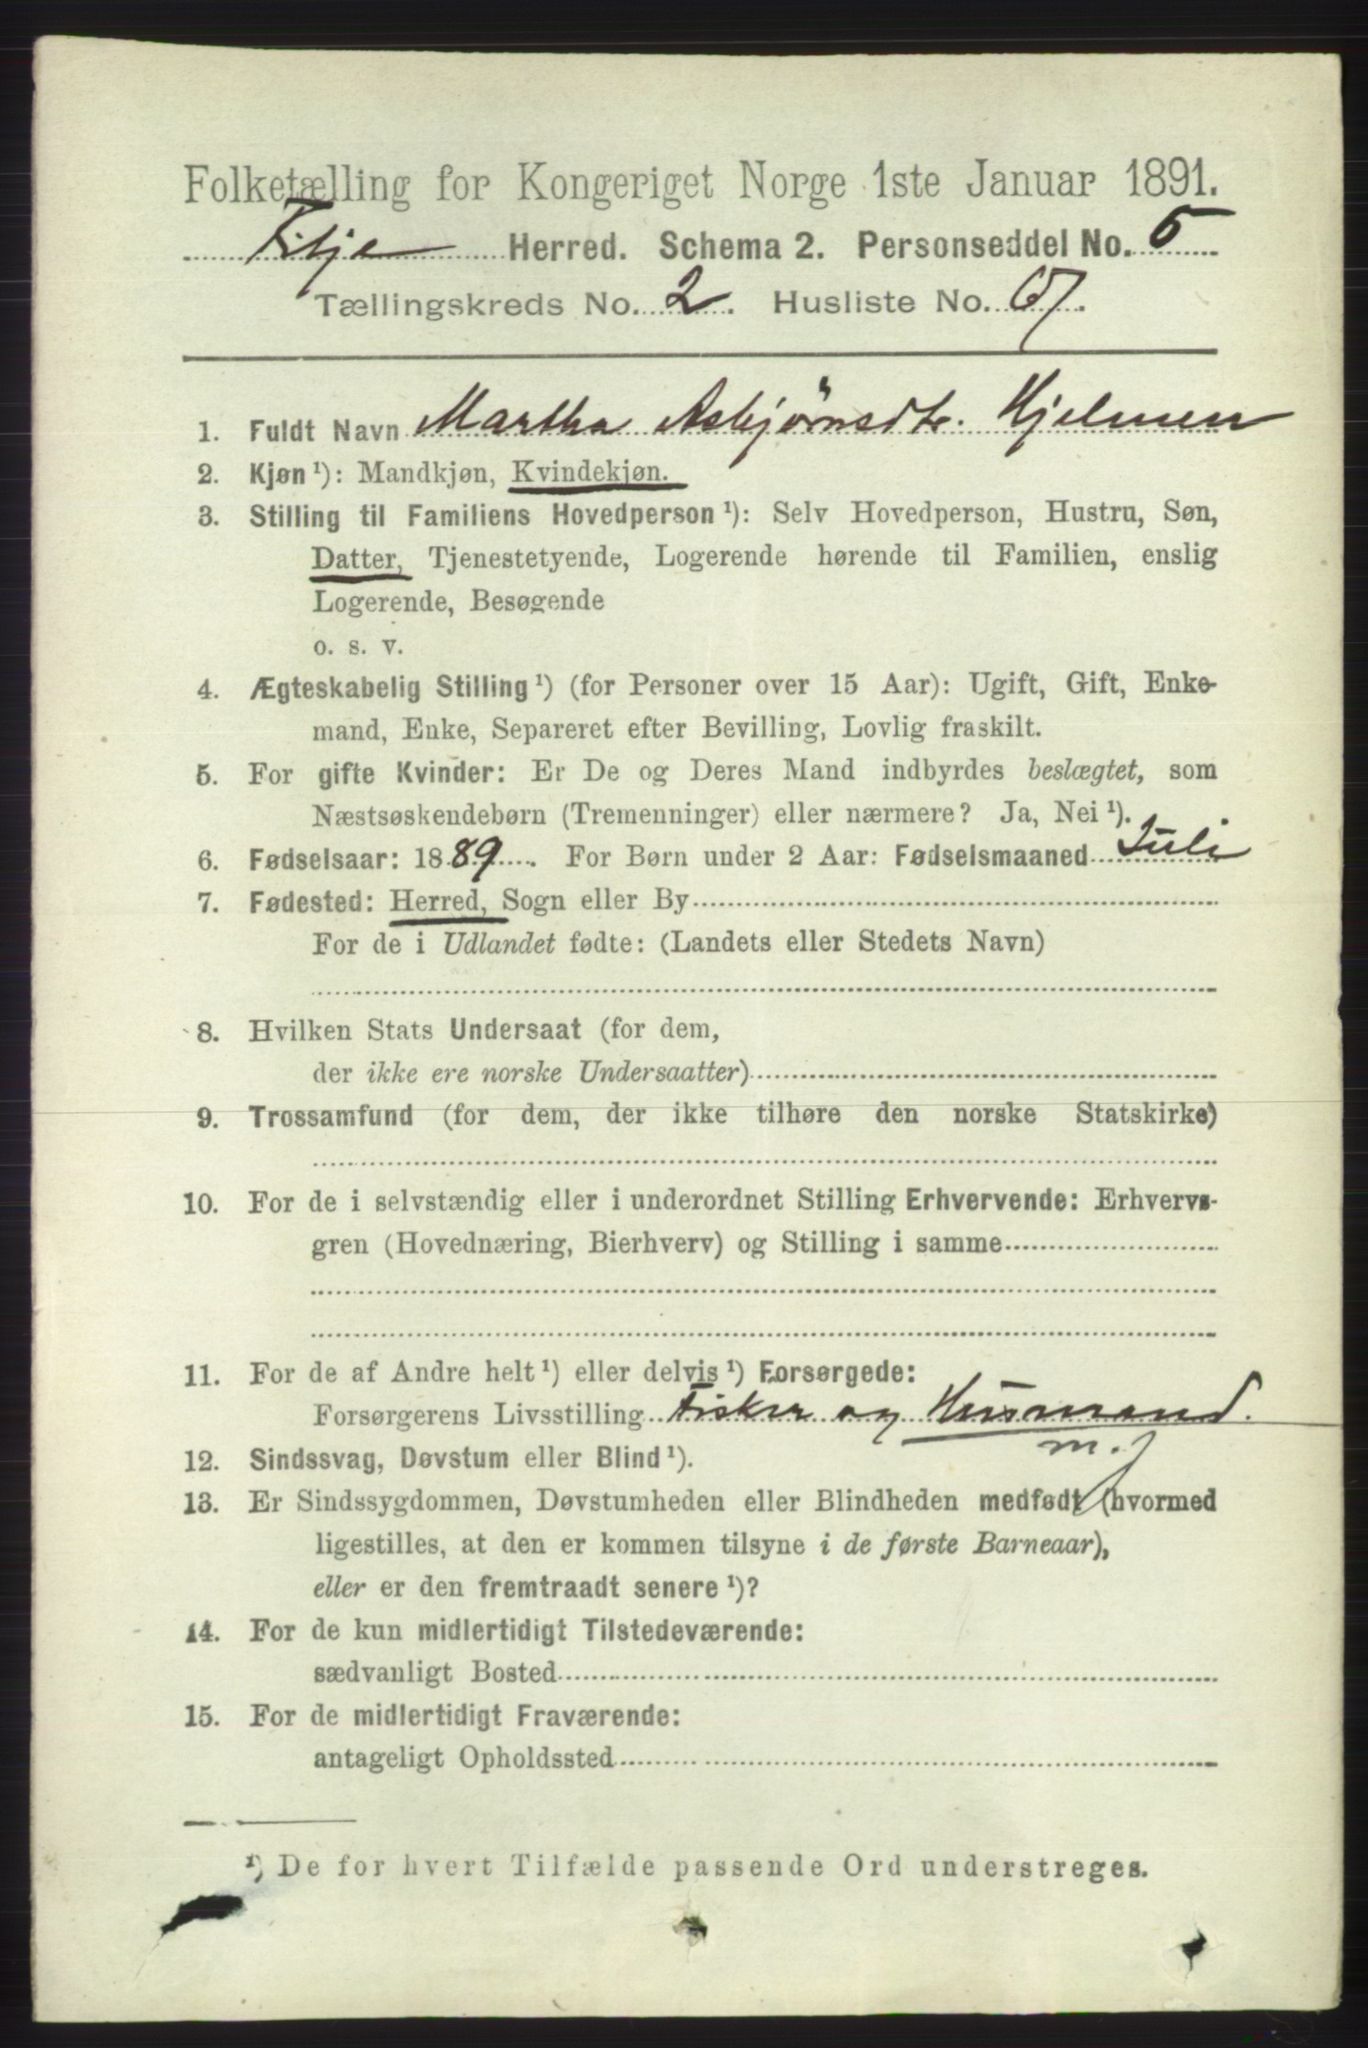 Folketælling for Kongeriget Norge 1ste Januar 1891.
Fitje Herred. Schema 2. Personseddel No. 5
Tællingskreds No. 2. Husliste No. 67.
1. Fuldt Navn Martha Asbjørnsdtr. Hjelmen
2. Kjøn ¹): Mandkjøn, Kvindekjøn.
3. Stilling til Familiens Hovedperson ¹): Selv Hovedperson, Hustru, Søn,
Datter, Tjenestetyende, Logerende hørende til Familien, enslig
Logerende, Besøgende
o. s. v.
4. Ægteskabelig Stilling ¹) (for Personer over 15 Aar): Ugift, Gift, Enke-
mand, Enke, Separeret efter Bevilling, Lovlig fraskilt.
5. For gifte Kvinder: Er De og Deres Mand indbyrdes beslægtet, som
Næstsøskendebørn (Tremenninger) eller nærmere? Ja, Nei ¹).
6. Fødselsaar: 1889. For Børn under 2 Aar: Fødselsmaaned Juli
7. Fødested: Herred, Sogn eller By
For de i Udlandet fødte: (Landets eller Stedets Navn)
8. Hvilken Stats Undersaat (for dem,
der ikke ere norske Undersaatter)
9. Trossamfund (for dem, der ikke tilhøre den norske Statskirke)
10. For de i selvstændig eller i underordnet Stilling Erhvervende: Erhvervs-
gren (Hovednæring, Bierhverv) og Stilling i samme
11. For de af Andre helt ¹) eller delvis ¹) Forsørgede:
Forsørgerens Livsstilling Fisker og Husmand.
m. J
12. Sindssvag, Døvstum eller Blind ¹).
13. Er Sindssygdommen, Døvstumheden eller Blindheden medfødt (hvormed
ligestilles, at den er kommen tilsyne i de første Barneaar),
eller er den fremtraadt senere ¹)?
14. For de kun midlertidigt Tilstedeværende:
sædvanligt Bosted
15. For de midlertidigt Fraværende:
antageligt Opholdssted
¹) De for hvert Tilfælde passende Ord understreges.